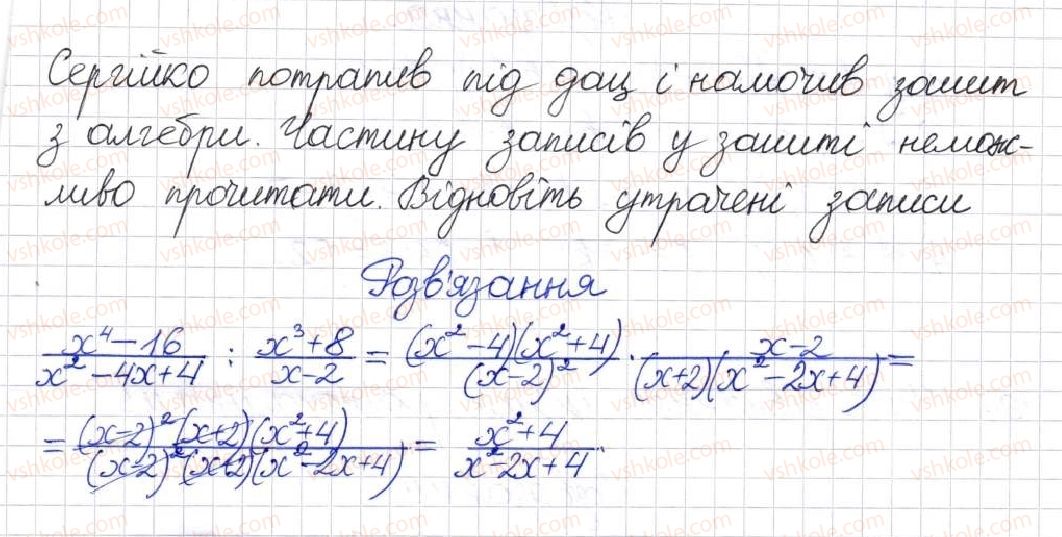 Сергійко потрапив під дощ і намочив зошит
з алгебри. Частину записів у зошиті немож-
ливо прочитати. Відновіть утрачені записи
Розв'язання
(x⁴-16)/(x²-4x+4) : (x³+8)/(x-2) = ((x²-4)(x²+4))/((x-2)²) · (x-2)/((x+2)(x²-2x+4)) =
= ((x-2)²(x+2)(x²+4))/((x-2)²(x+2)(x²-2x+4)) = (x²+4)/(x²-2x+4).